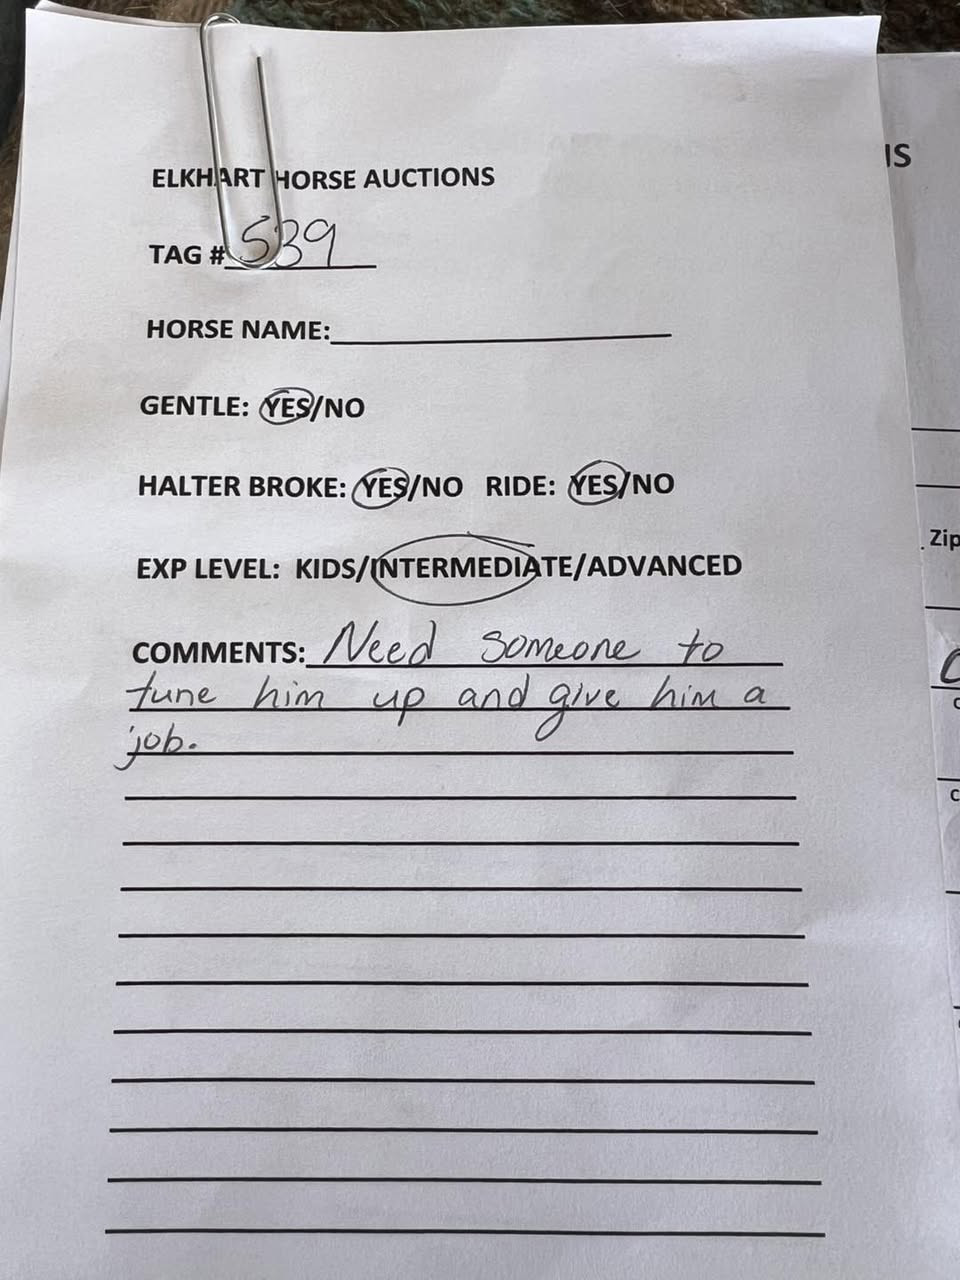 ELKHART HORSE AUCTIONS
TAG # 539
HORSE NAME:
GENTLE: YES/NO
HALTER BROKE: YES/NO RIDE: YES/NO
EXP LEVEL: KIDS/INTERMEDIATE/ADVANCED
COMMENTS: Need someone to
tune him up and give him a
job.
IS
Zip